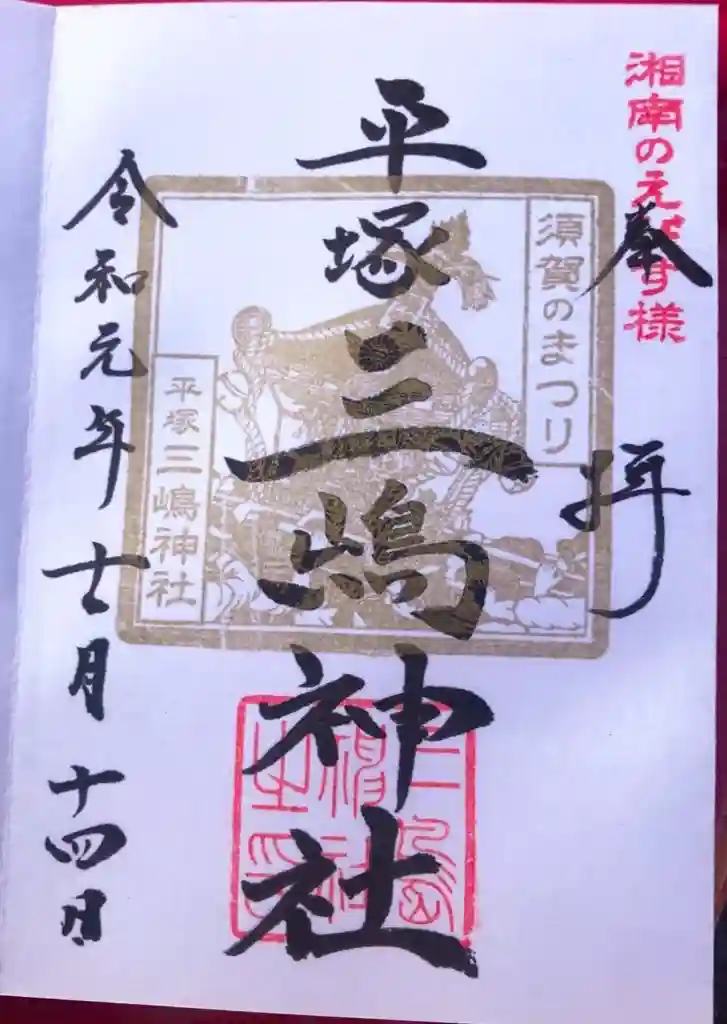 湘南のえびす様
奉拝
須賀のまつり
平塚三嶋神社
平塚三嶋神社
三嶋
神社
之印
令和元年十一月十四日